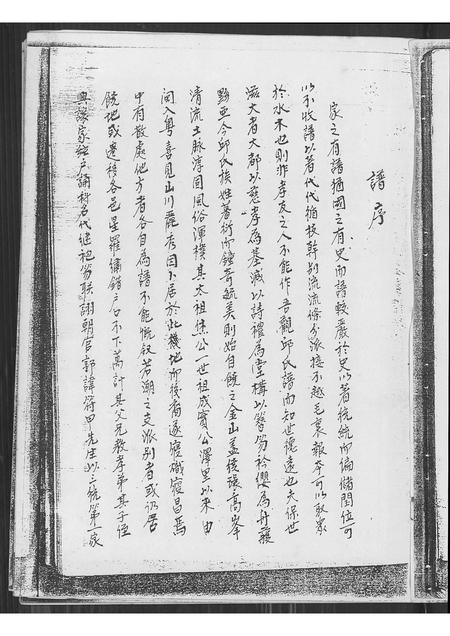 譜序
家之有譜猶國之有史而譜較嚴於史以著統統而偏儲閏位可
以不收譜以著代代循枝幹別流流條分派接不越毛裏報本可以取象
於水木也則非孝友之人不能作吾觀邱氏譜而知世德遠也夫保世
滋大者大都以慈孝為基滅以詩禮為堂構以簪笏衿纓為丹雘
黝堊今邱氏族姓蕃衍而鍾奇毓美則始自饒之金山蓋後張高峯
清流土脉淳固風俗渾樸其太祖烋公一世祖成實公澤里以來由
閩入粵喜見山川麗秀因卜居於此幾地而後者遂寢熾寢昌焉
中有散處他方者各自為譜不能悉叙若潮之支派別者或仍居
饒地或遷移各邑星羅繡錯戶口不下萬計其父兄教孝弟其子侄
興讓家絃戶誦科名代繼袍笏聯翩朝官郭諱符甲先生以三統第一家